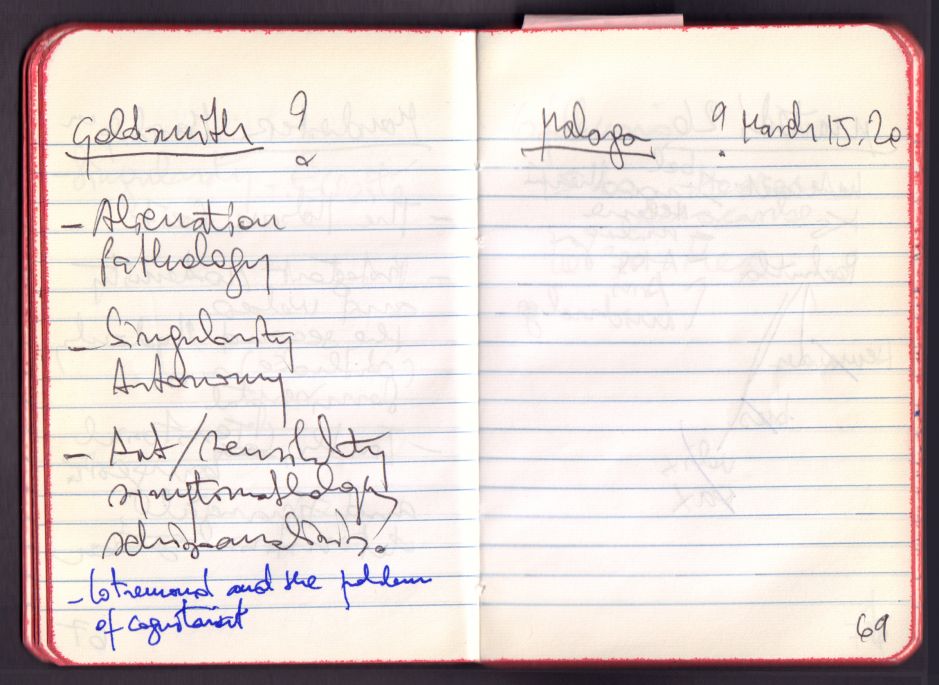 Goldsmith ?
- Alienation
Pathology
- Singularity
Autonomy
- Art/sensibility
symptomathology
schizoanalisis.
- and the problem
of
Malaga ? March 15.20
69